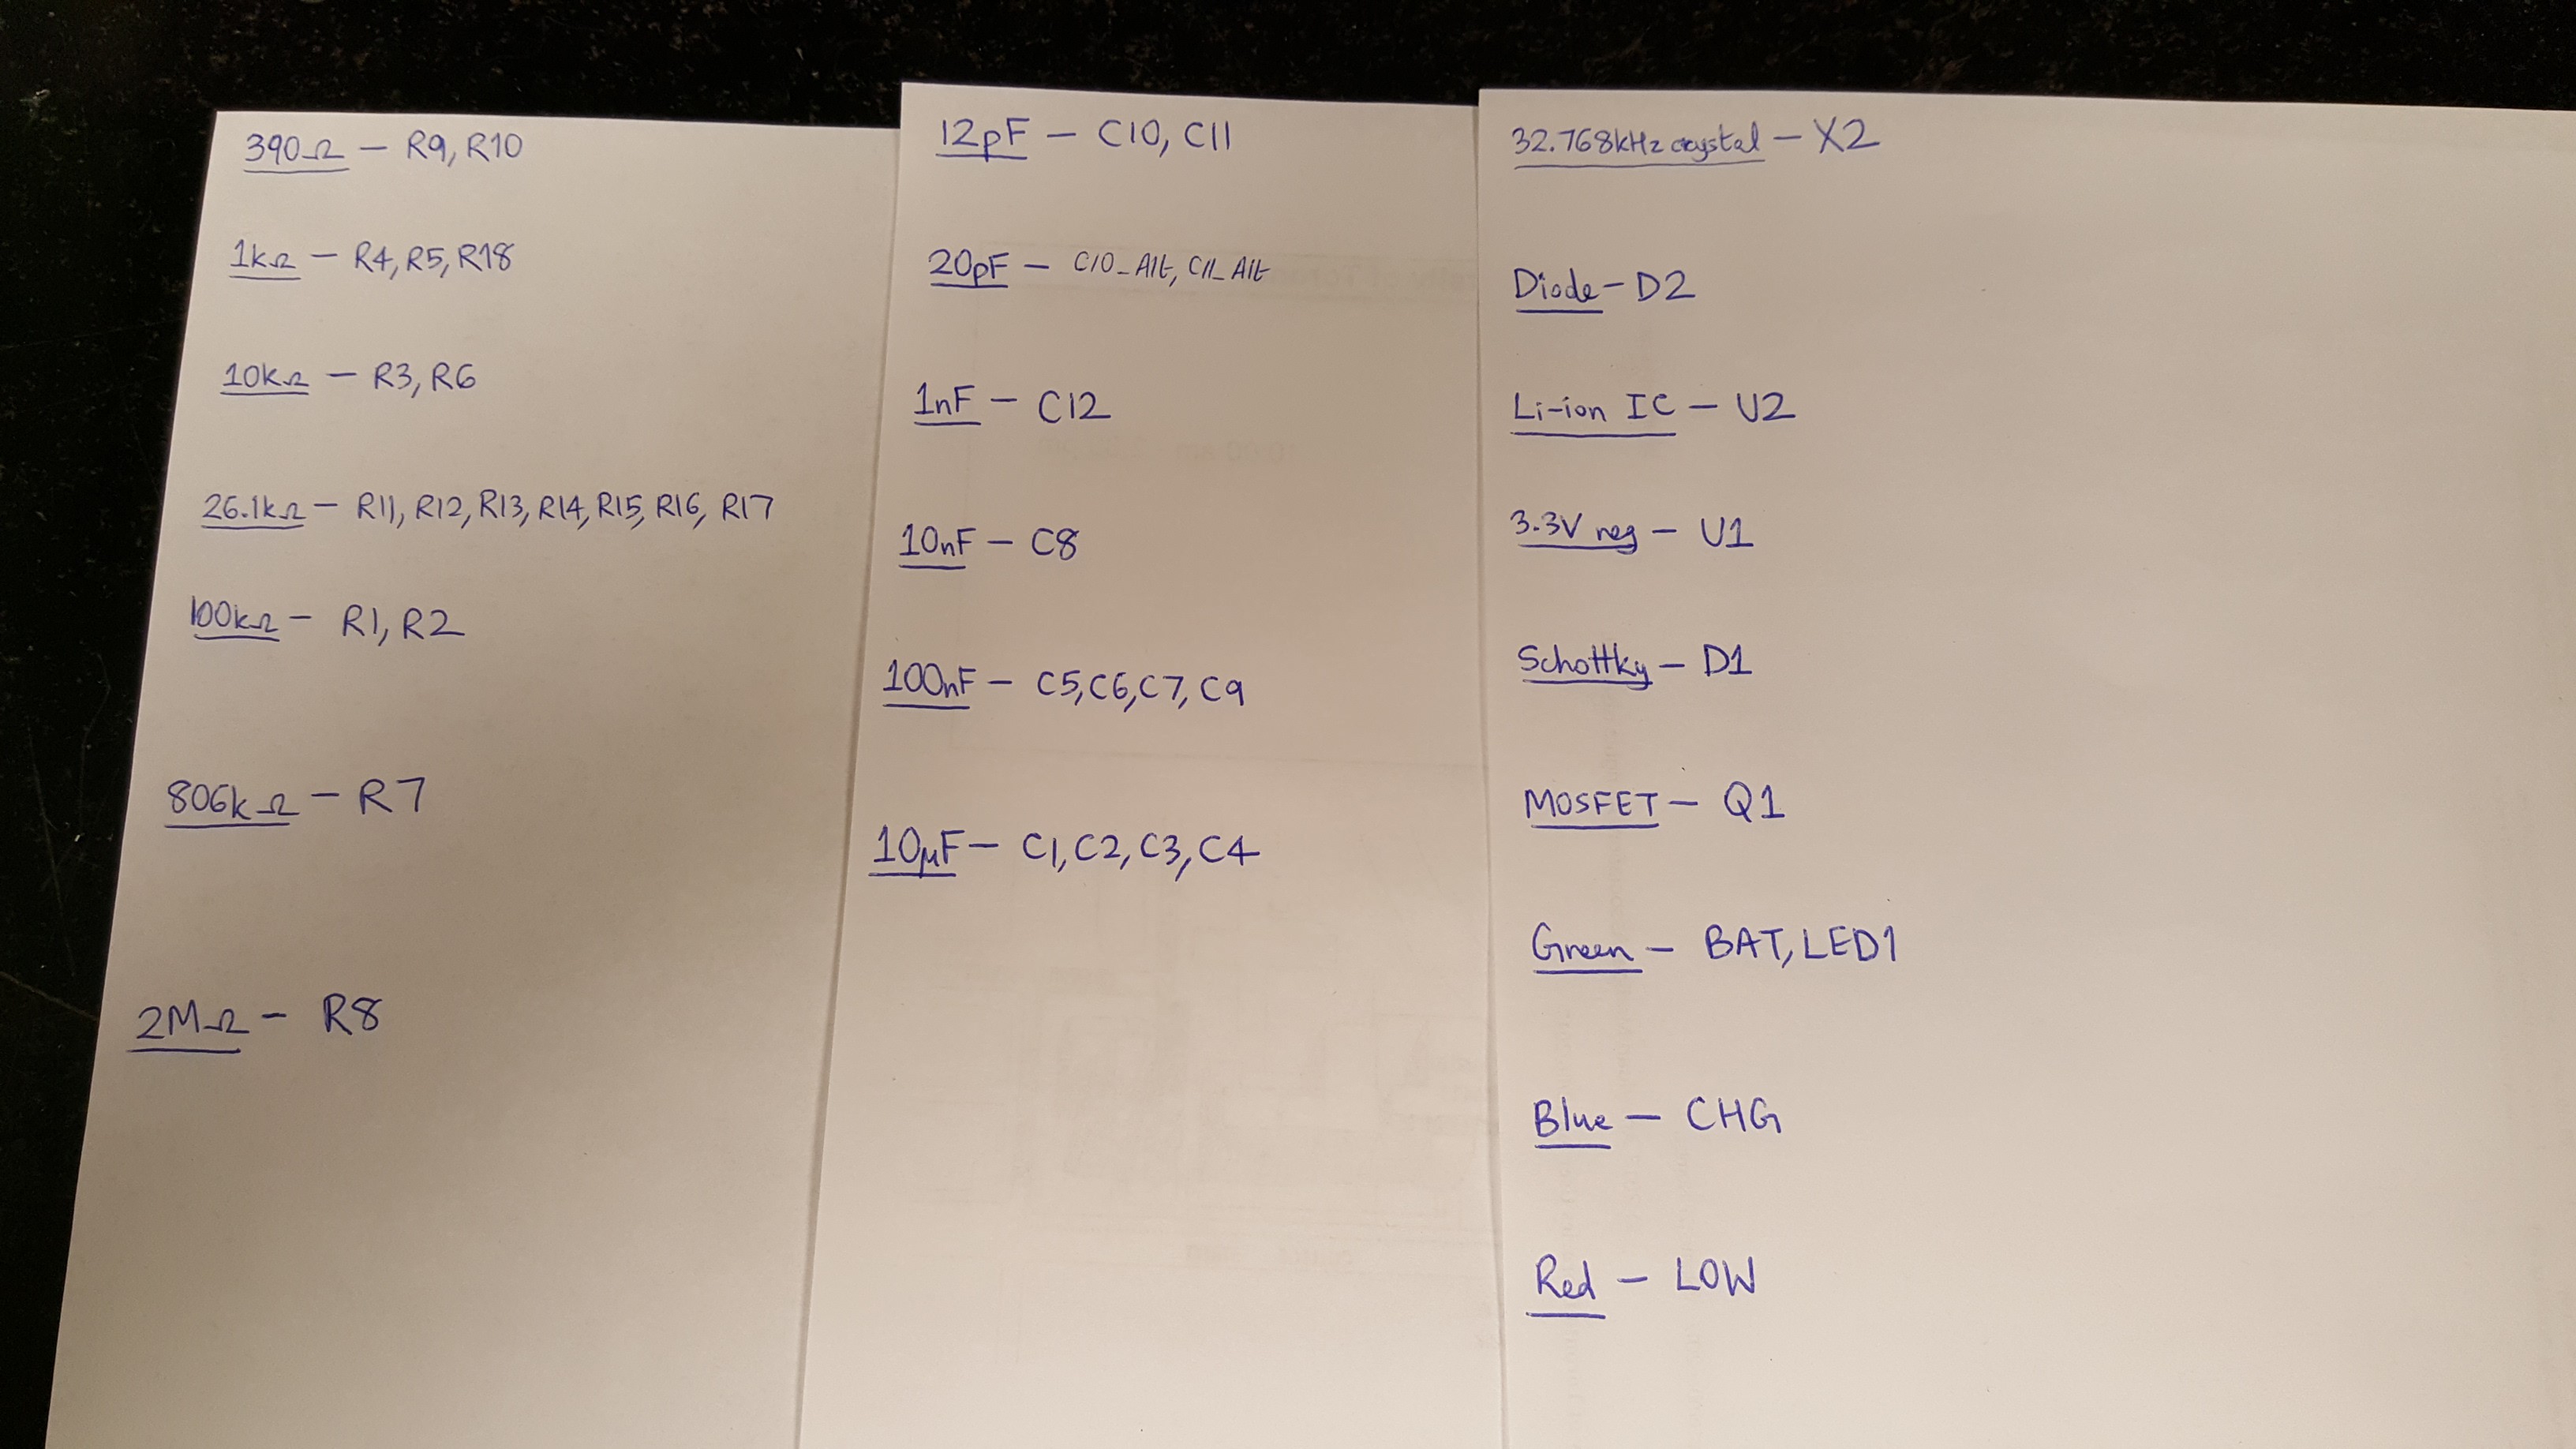 390Ω — R9, R10
1kΩ — R4, R5, R18
10kΩ — R3, R6
26.1kΩ — R11, R12, R13, R14, R15, R16, R17
100kΩ — R1, R2
806kΩ — R7
2MΩ — R8
12pF — C10, C11
20pF — C10_Alt, C11_Alt
1nF — C12
10nF — C8
100nF — C5, C6, C7, C9
10µF — C1, C2, C3, C4
32.768kHz crystal — X2
Diode — D2
Li-ion IC — U2
3.3V reg — U1
Schottky — D1
MOSFET — Q1
Green — BAT, LED1
Blue — CHG
Red — LOW